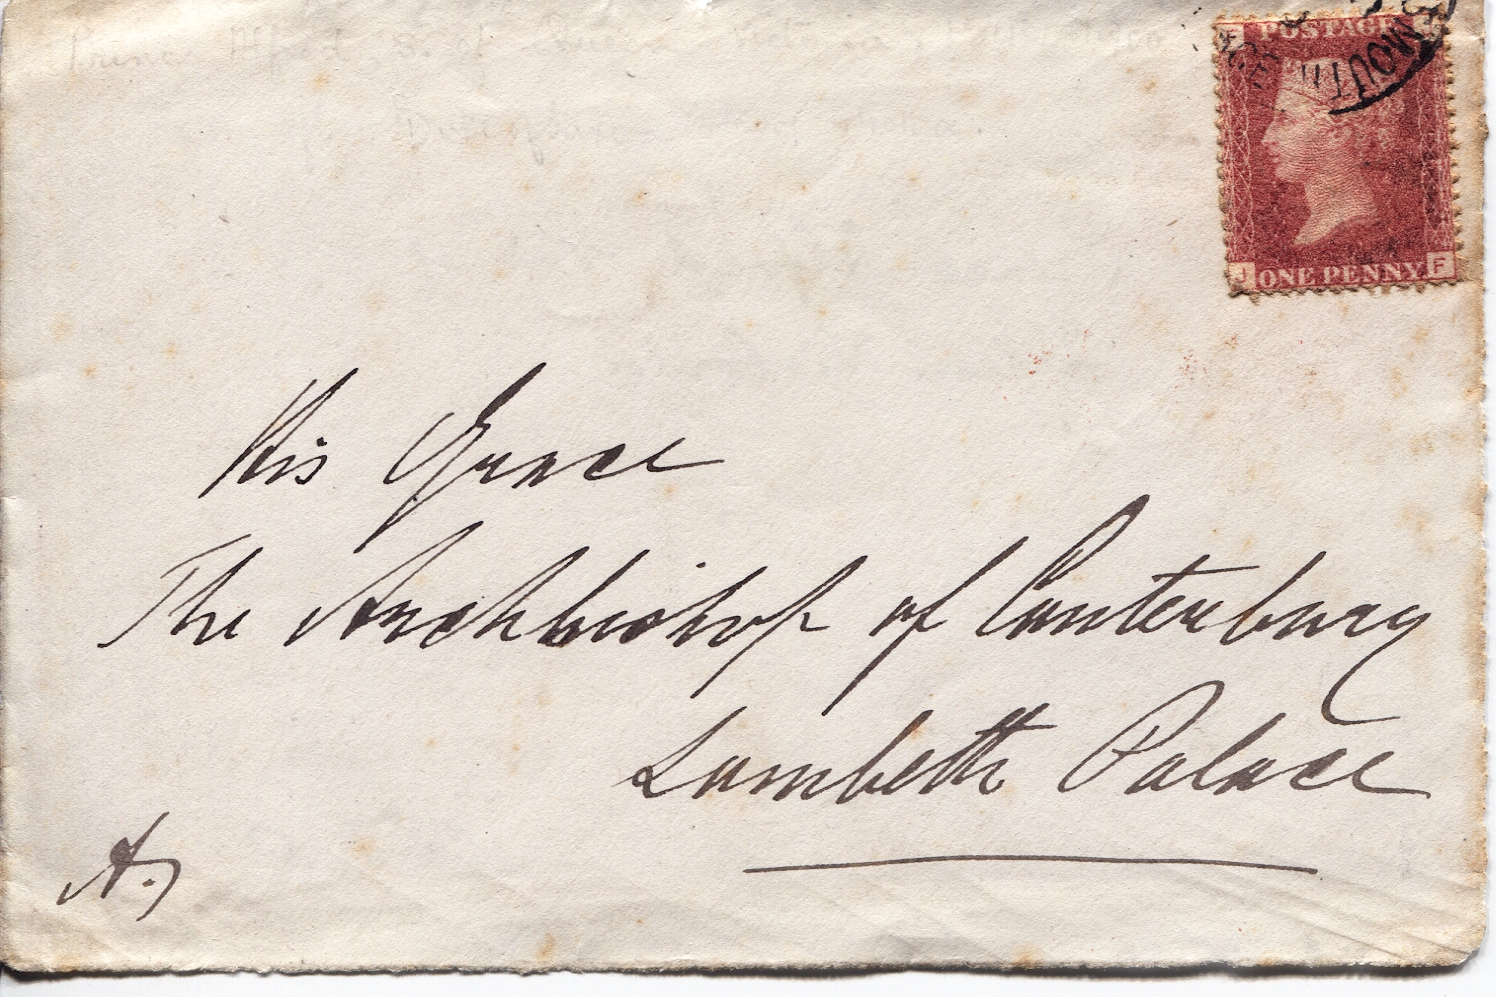 Prince Alfred, S. of
POSTAGE
MOUTH
J ONE PENNY F
His Grace
The Archbishop of Canterbury
Lambeth Palace
A.